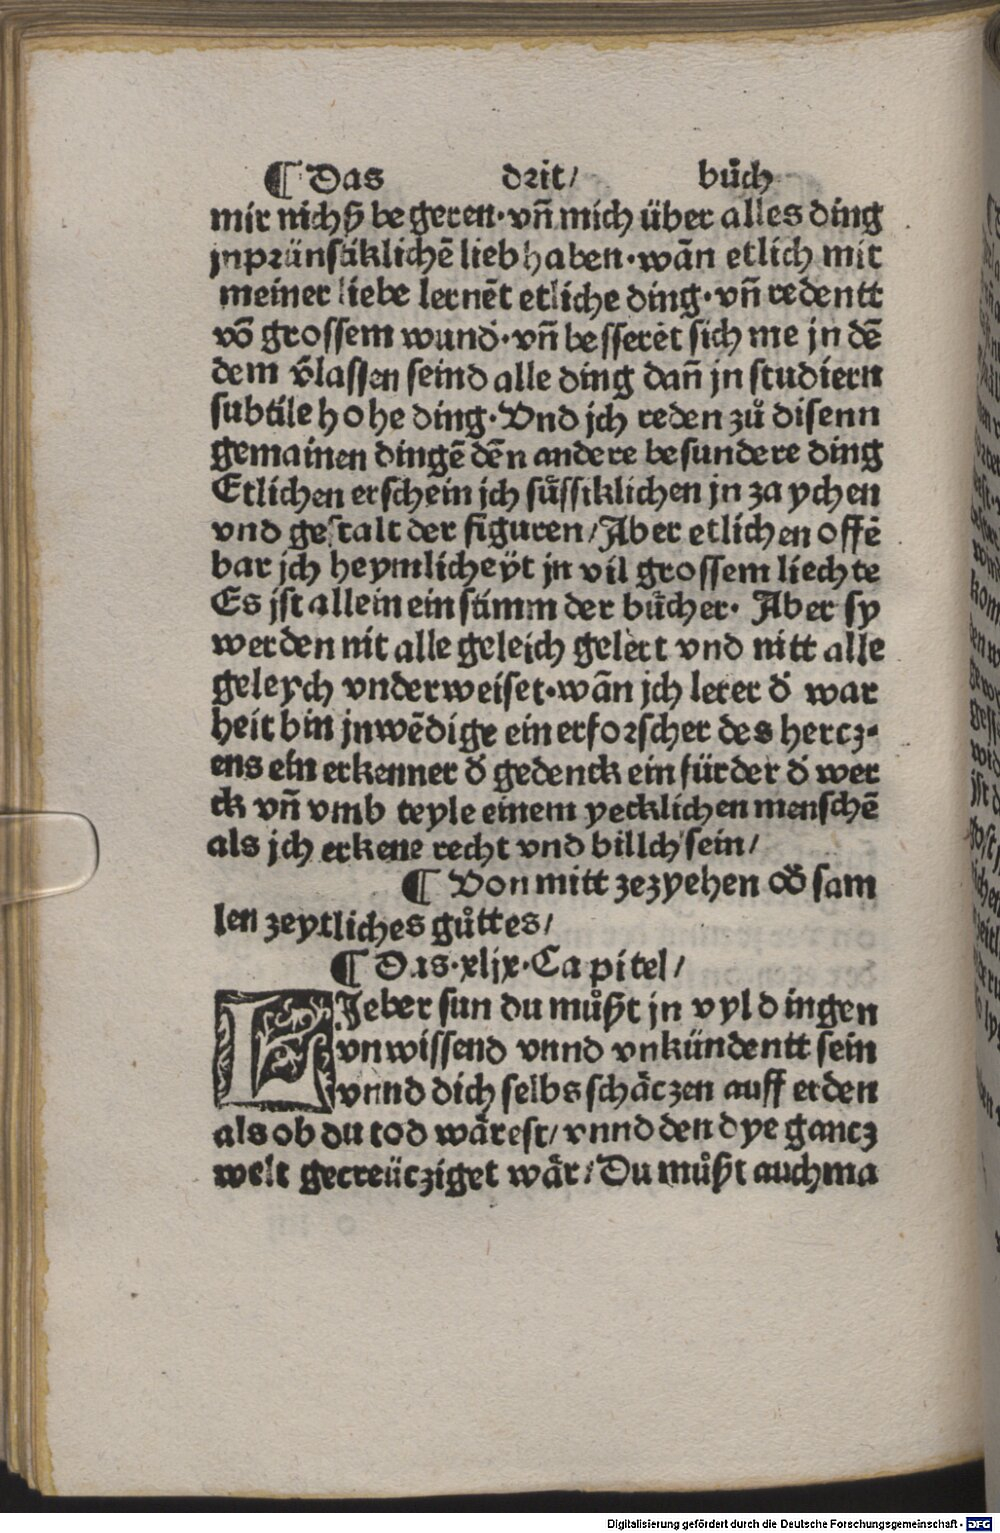 ¶ Das drit/ bůch
mir nichß be geren·vñ mich über alles ding
jnprünstiklichē lieb haben·wān etlich mit
meiner liebe lernēt etliche ding·vñ redentt
vō grossem wund̓·vñ besserēt sich me jn dē
dem v̄lassen seind alle ding dañ jn studiern
subtile hohe ding·Vnd jch reden zů disenn
gemainen dingē dēn andere besundere ding
Etlichen erschein jch sůssiklichen jn zaychen
vnd gestalt der figuren/Aber etlichen offē
bar jch heymlicheyt jn vil grossem liechte
Es jst allein ein stimm der bůcher· Aber sy
werden nit alle geleich gelert vnd nitt alle
geleych vnderweiset·wān jch lerer d̓ war
heit bin jnwēdige ein erforscher des hercz⸗
ens ein erkenner d̓ gedenck ein fürder d̓ wer
ck vñ vmb teyle einem yecklichen menschē
als jch erkene recht vnd billch sein/
¶ Von mitt zezyehen od̓ sam
len zeytliches gůttes/
¶ Das·xlix·Capitel/
LIeber sun du můßt jn vyl dingen
vnwissend vnnd vnkündentt sein
vnnd dich selbs schäczen auff erden
als ob du tod wärest/vnnd den dye gancz
welt gecreücziget wär/Du můßt auch ma
Digitalisierung gefördert durch die Deutsche Forschungsgemeinschaft - DFG